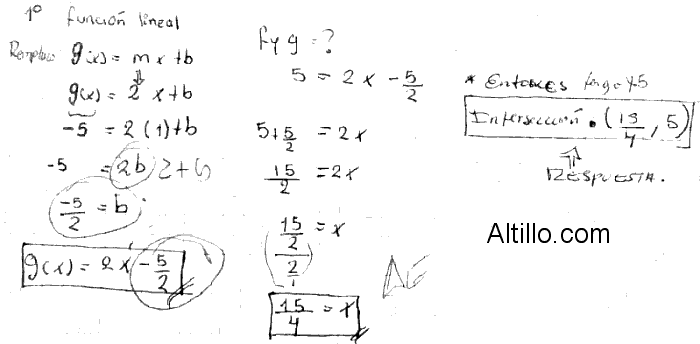 1º función lineal
Remplazo g(x) = mx+b
⇓
g(x) = 2x+b
-5 = 2(1)+b
-5 = 2b 2+b
-5/2 = b
g(x) = 2x - 5/2
f y g = ?
5 = 2x - 5/2
5 + 5/2 = 2x
15/2 = 2x
15/2 / 2/1 = x
15/4 = x
* Entonces
Intersección. (15/4, 5)
⇑
RESPUESTA.
Altillo.com